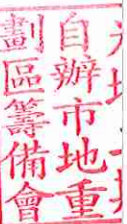 自辦市地重
劃區籌備會